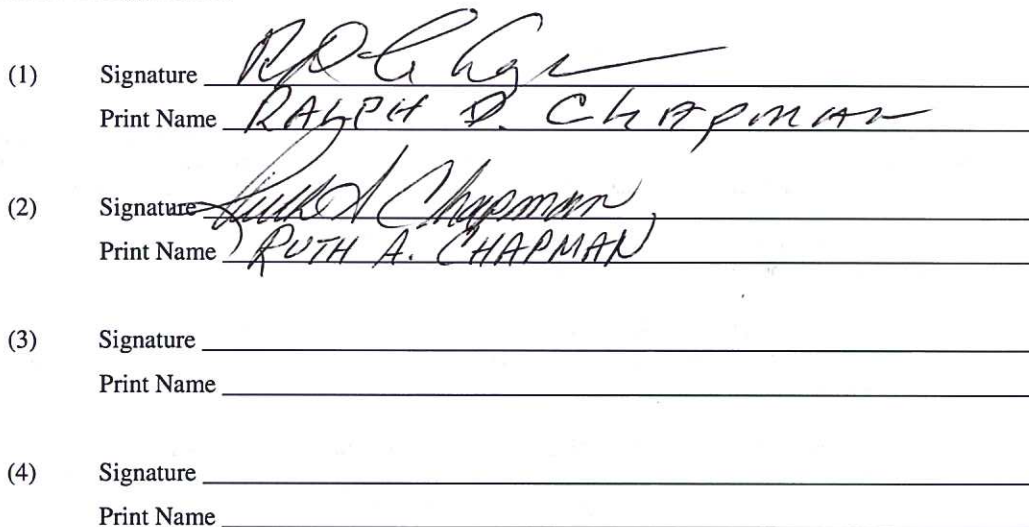 (1) Signature
Print Name RALPH D. CHAPMAN
(2) Signature Ruth A Chapman
Print Name RUTH A. CHAPMAN
(3) Signature
Print Name
(4) Signature
Print Name